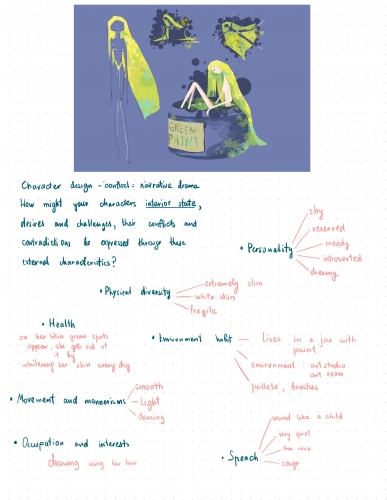 GREEN
PAINT
Character design - conflict = narrative drama
How might your characters interior state,
desires and challenges, their conflicts and
contradictions be expressed through these
external characteristics?
• Personality
shy
reserved
moody
introverted
dreamy
• Physical diversity
extremely slim
white skin
fragile
• Health
on her skin green spots
appear, she get rid of
it by
whitening her skin every day
• Environment habit
lives in a jar with
paint
environment: art studio
art room
pallete, brushes
• Movement and mannerisms
smooth
light
dancing
• Occupation and interests
drawing using her hair
• Speach
sound like a child
very quiet
thin voice
cough